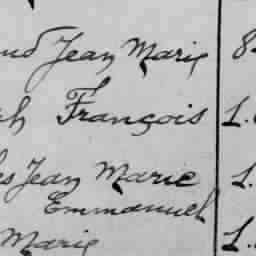 Jean Marie 8
François L.
Jean Marie L.
Emmanuel
Marie L.